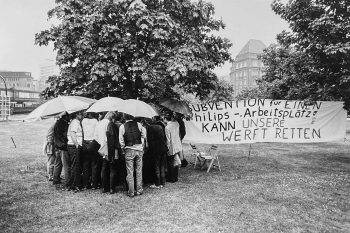 SUBVENTION für EINEN
Philips-Arbeitsplatz
KANN UNSERE
WERFT RETTEN